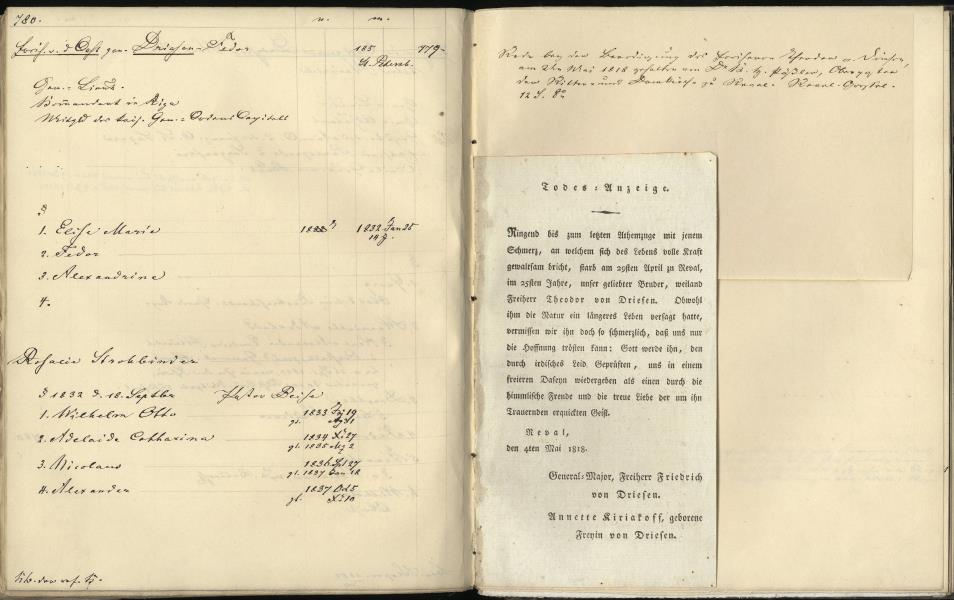 780.
n. m.
Driesen-Fedor
185. 779
St. Petersb.
Gen.-Lieut.
Kommandant in Riga
Mitgl. des Kais. Gen.
1. Elise Marie 1832 Jan 25
2. Fedor
3. Alexandrine
4.
Rosalie Strohbinder
d. 18. Septbr Pastor Beise
1. Wilhelm Otto 1833
2. Adelaide Catharina 1834 XI 27
gt. 1835 Mz 2
3. Nicolaus 1836 Spt 27
gt. 1837 Jan 18
4. Alexander 1837 Oct 5
gt.
Rede bey der Beerdigung des Freiherrn Theodor v. Driesen,
am 2ten Mai 1818 gehalten von
der Ritter und Domkirche zu Reval.
12 S. 8o
Todes-Anzeige.
Ringend bis zum letzten Athemzuge mit jenem
Schmerz, an welchem sich des Lebens volle Kraft
gewaltsam bricht, starb am 29sten April zu Reval,
im 25sten Jahre, unser geliebter Bruder, weiland
Freiherr Theodor von Driesen. Obwohl
ihm die Natur ein längeres Leben versagt hatte,
vermissen wir ihn doch so schmerzlich, daß uns nur
die Hoffnung trösten kann: Gott werde ihn, den
durch irdisches Leid Geprüften, uns in einem
freieren Daseyn wiedergeben als einen durch die
himmlische Freude und die treue Liebe der um ihn
Trauernden erquickten Geist.
Reval,
den 4ten Mai 1818.
General-Major, Freiherr Friedrich
von Driesen.
Annette Kiriakoff, geborene
Freyin von Driesen.